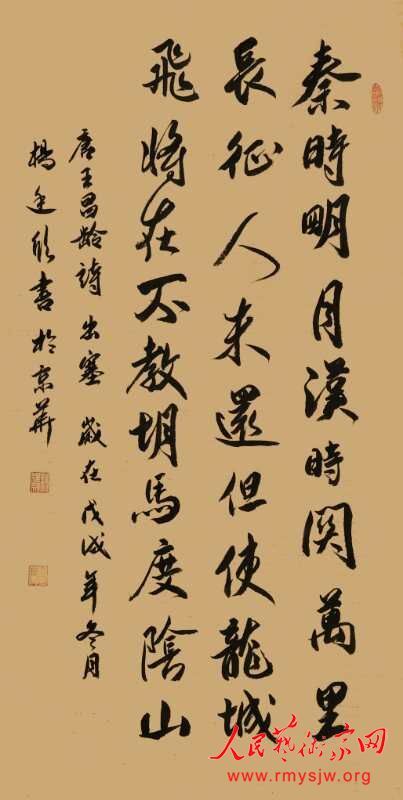 秦時明月漢時関萬里
長征人未還但使龍城
飛将在不教胡馬度陰山
唐王昌龄詩 出塞 歲在戊戌年冬月
楊 書於京華
人民藝術家网
www.rmysjw.org